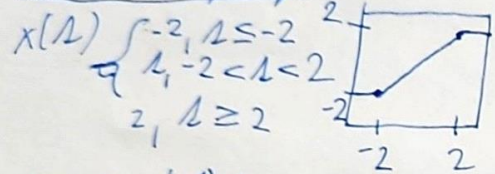 x(s) { -2, s ≤ -2
s, -2 < s < 2
2, s ≥ 2
2
-2
-2 2